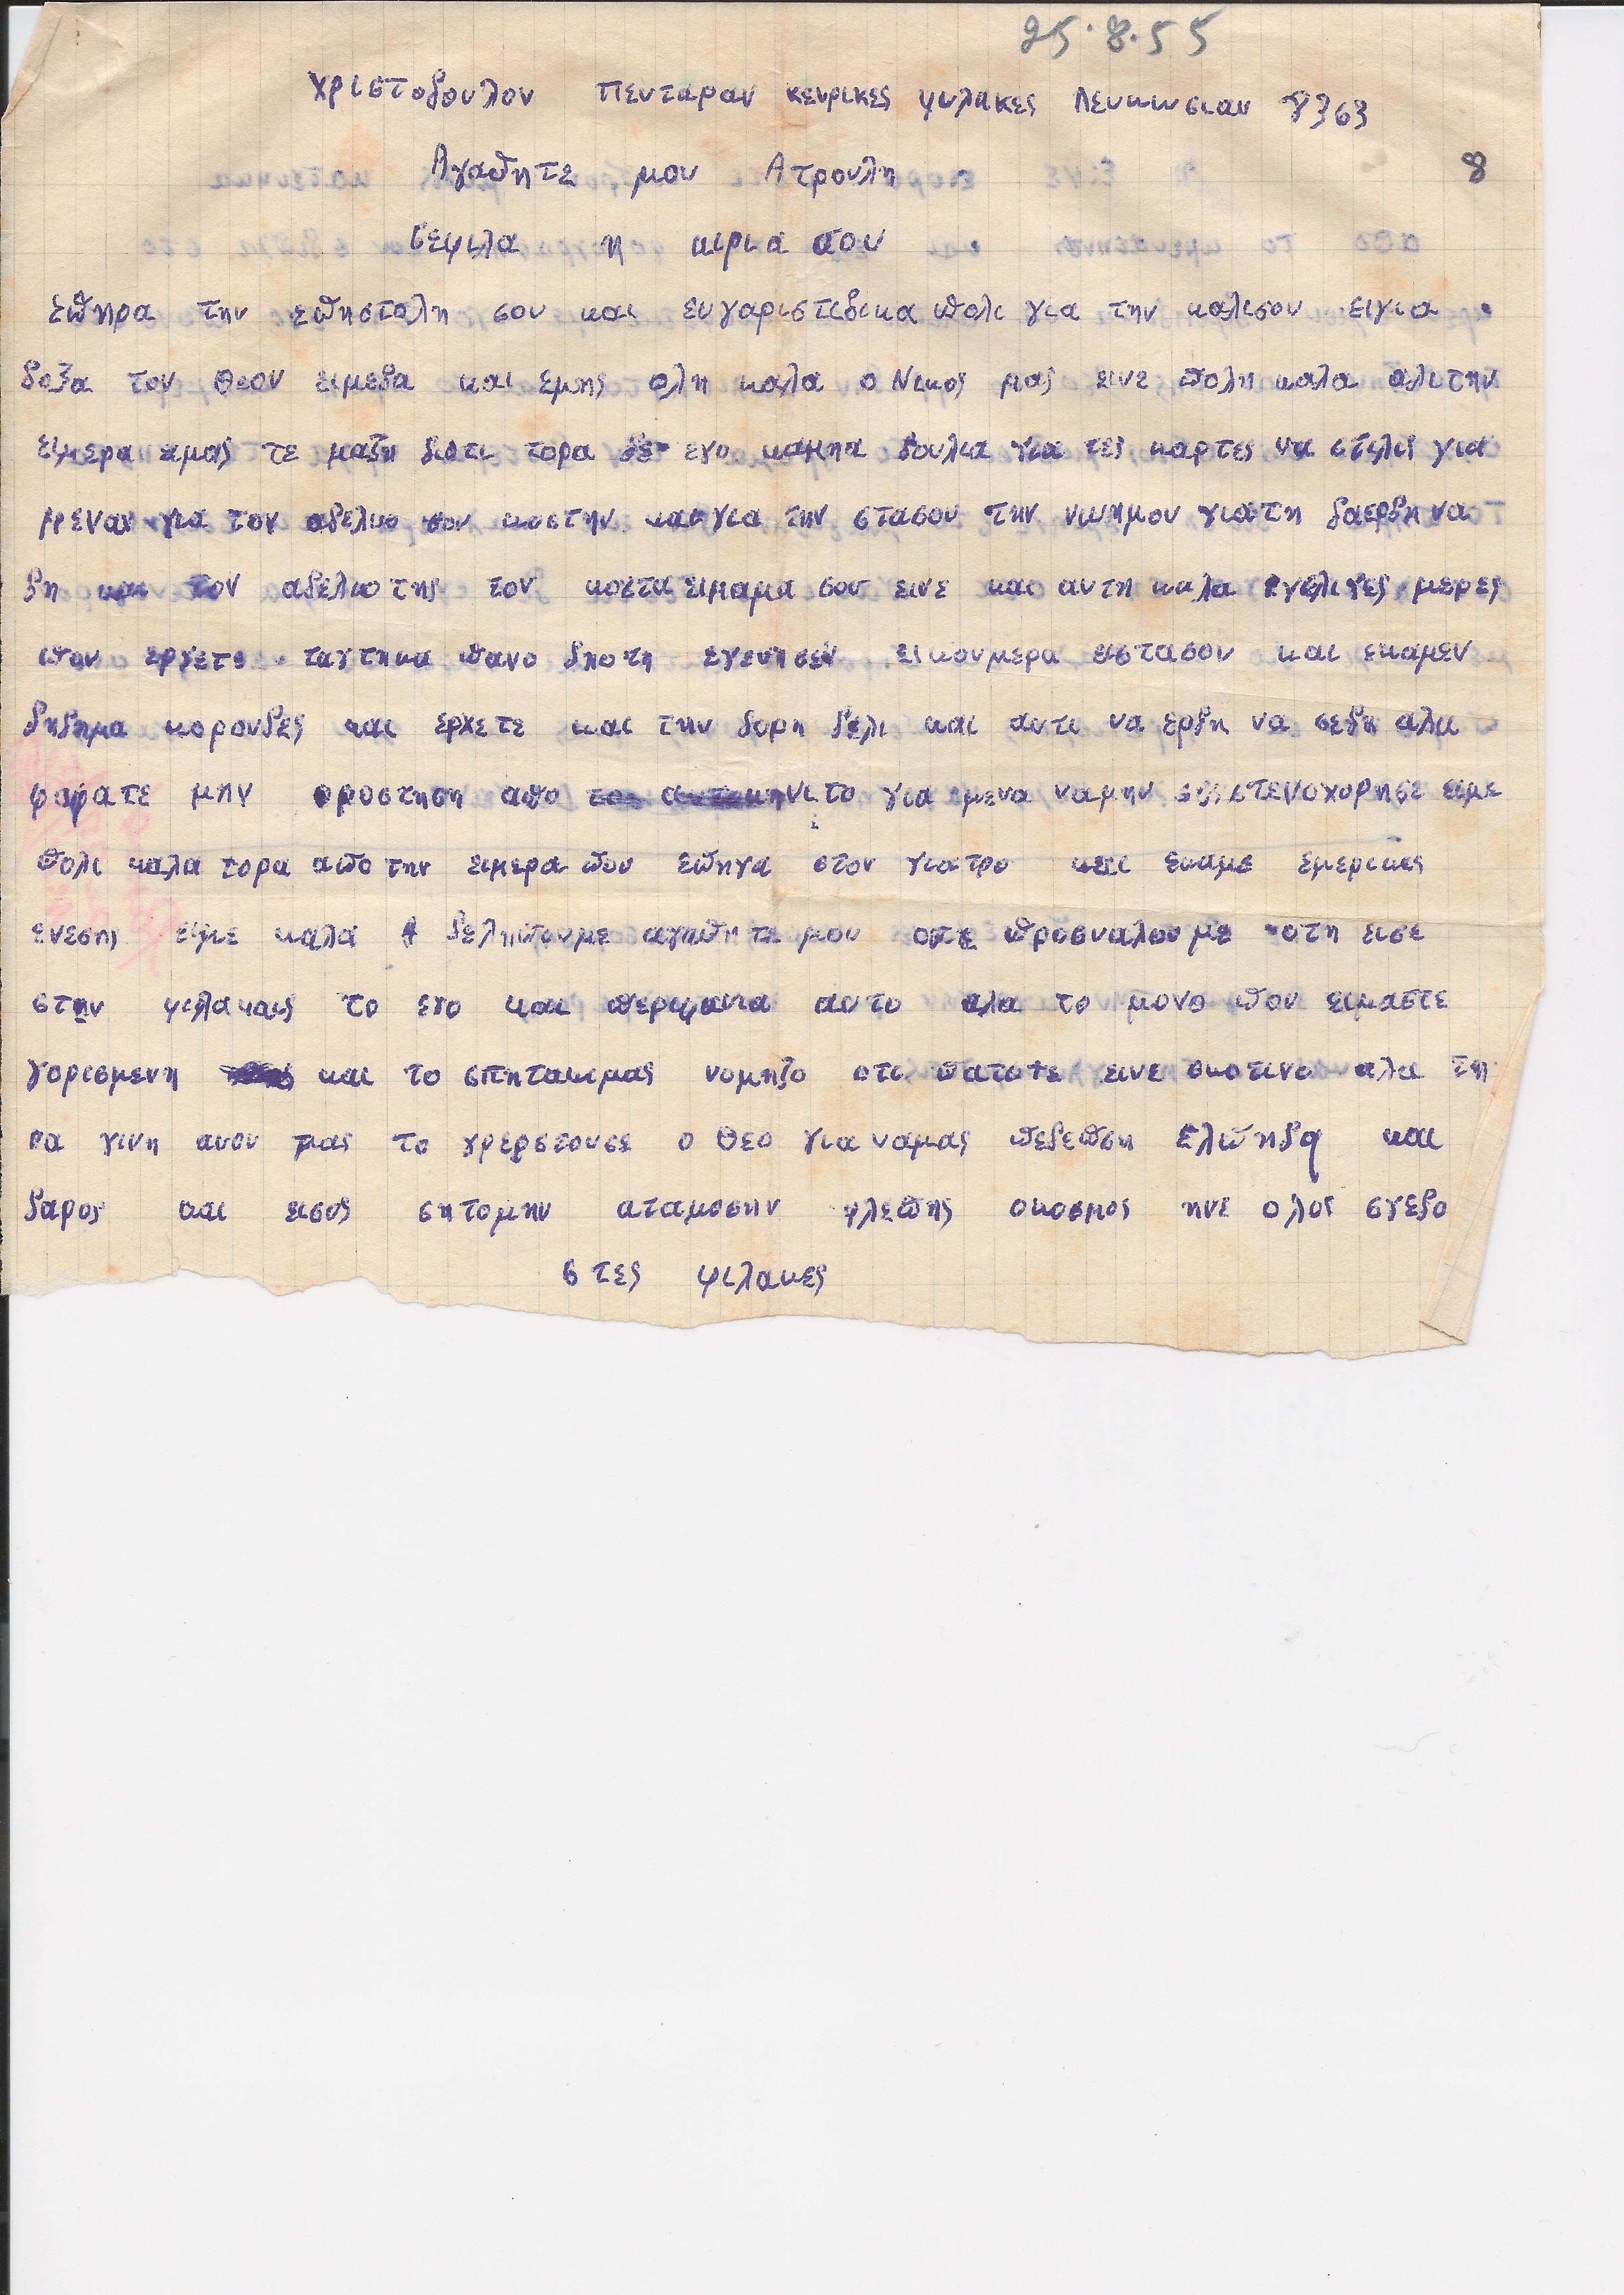 25.8.55
χριστοδουλον Πενταραν κενρικες φυλακες Λευκωσιαν 8363
Αγαπητε μου Ατρουλη 8
σεφιλα η κιρια σου
Επηρα την επηστολη σου και ευχαριστιδικα πολι για την καλισου ειγια
δοξα τον θεον ειμεδα και εμης ολη καλα ο Νικος μας εινε πολη καλα ολιτην
ειμερα εμας τε μαζη διοτι τορα δε εχο καμηα δουλια για τες καρτες να στελις για
μεναν για τον αδελκο σου κοστην και για την στασου την νινημου γιατη δαερδη να
δη και τον αδελκο της τον κοστα ειμαμα σου εινε και αυτη καλα εχι λιγες μερες
που ερχετε ταχτηκα πανο δηοτη εγενησεν εικουμερα ειστασου και εκαμεν
διδημα κορουδες και ερχετε και την δορη δελι και αυτι να ερδη να σεδη αλα
φοφατε μην αροστηση απο το κηνιτο για μενα ναμην στενοχορησε ειμε
πολι καλα τορα απο την ειμερα που επηγα στον γιατρο και εκαμε εμερικες
ενεσης ειμε καλα δεληπουμε αγαπητε μου οτε προσναλουμε οτη εισε
στην φιλακαις το εχο και περιφανια αυτο αλα το μονο που ειμαστε
χορισμενη και το σπητακιμας νομηζο οτι παποτε εινε σκοτινο αλα τη
να γινη αυου μας το χρερστουσε ο Θεο για ναμας πεδεπση Ελπηδα και
δαρος και εισος σητομην αταμοσην φλεπης οκοσμος ηνε ολος σχεδο
στες φιλακες